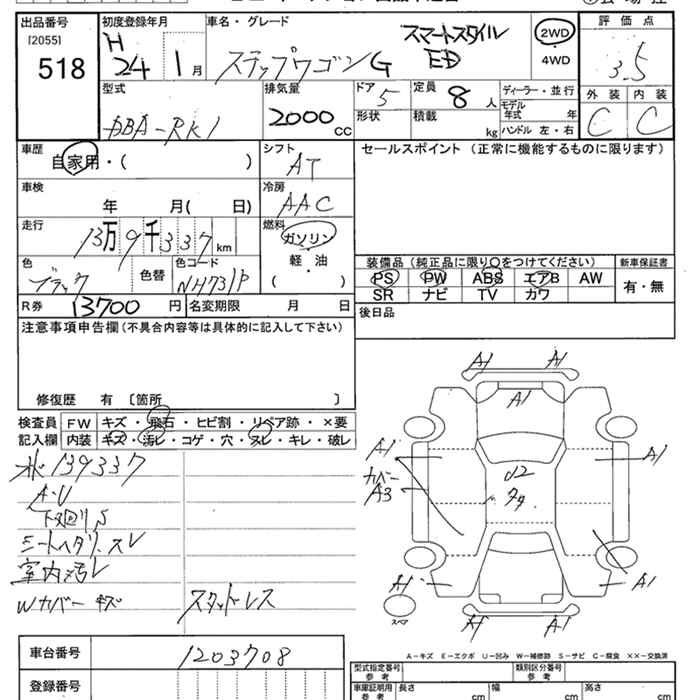 出品番号 初度登録年月 車名・グレード 評価点
[2055]
518
H 24 1月
ステップワゴン G スマートスタイル ED
2WD
4WD
3.5
外装 内装
C C
型式 排気量 ドア 定員 ディーラー・並行
DBA-RK1 2000cc 5 8人
モデル年式 年
形状 積載 kg ハンドル 左・右
車歴 シフト セールスポイント (正常に機能するものに限ります)
自家用・( ) AT
車検 冷房
年 月( 日) AAC
走行 燃料
13万9千337km ガソリン
軽・油
( )
色 色替 色コード
ブラック NH731P
装備品 (純正品に限り○をつけてください) 新車保証書
PS PW ABS エアB AW 有・無
SR ナビ TV カワ
R券 13700円 名変期限 月 日 後日品
注意事項申告欄(不具合内容等は具体的に記入して下さい)
修復歴 有 〔箇所 〕
検査員 FW キズ・飛石・ヒビ割・リペア跡・×要
記入欄 内装 キズ・汚レ・コゲ・穴・スレ・キレ・破レ
139337
A・U
下廻りS
シートヘタリ、スレ
室内汚レ
Wカバーキズ スタッドレス
A1 A1
A1
A1 A1
カバー
A3
U2
A1 A1
スペア
A1 A1
A-キズ E-エクボ U-凹み W-補修跡 S-サビ C-腐食 XX-交換済
車台番号 1203708
登録番号
型式指定番号 参考 類別区分番号 参考
車庫証明用 参考 長さ cm 幅 cm 高さ cm